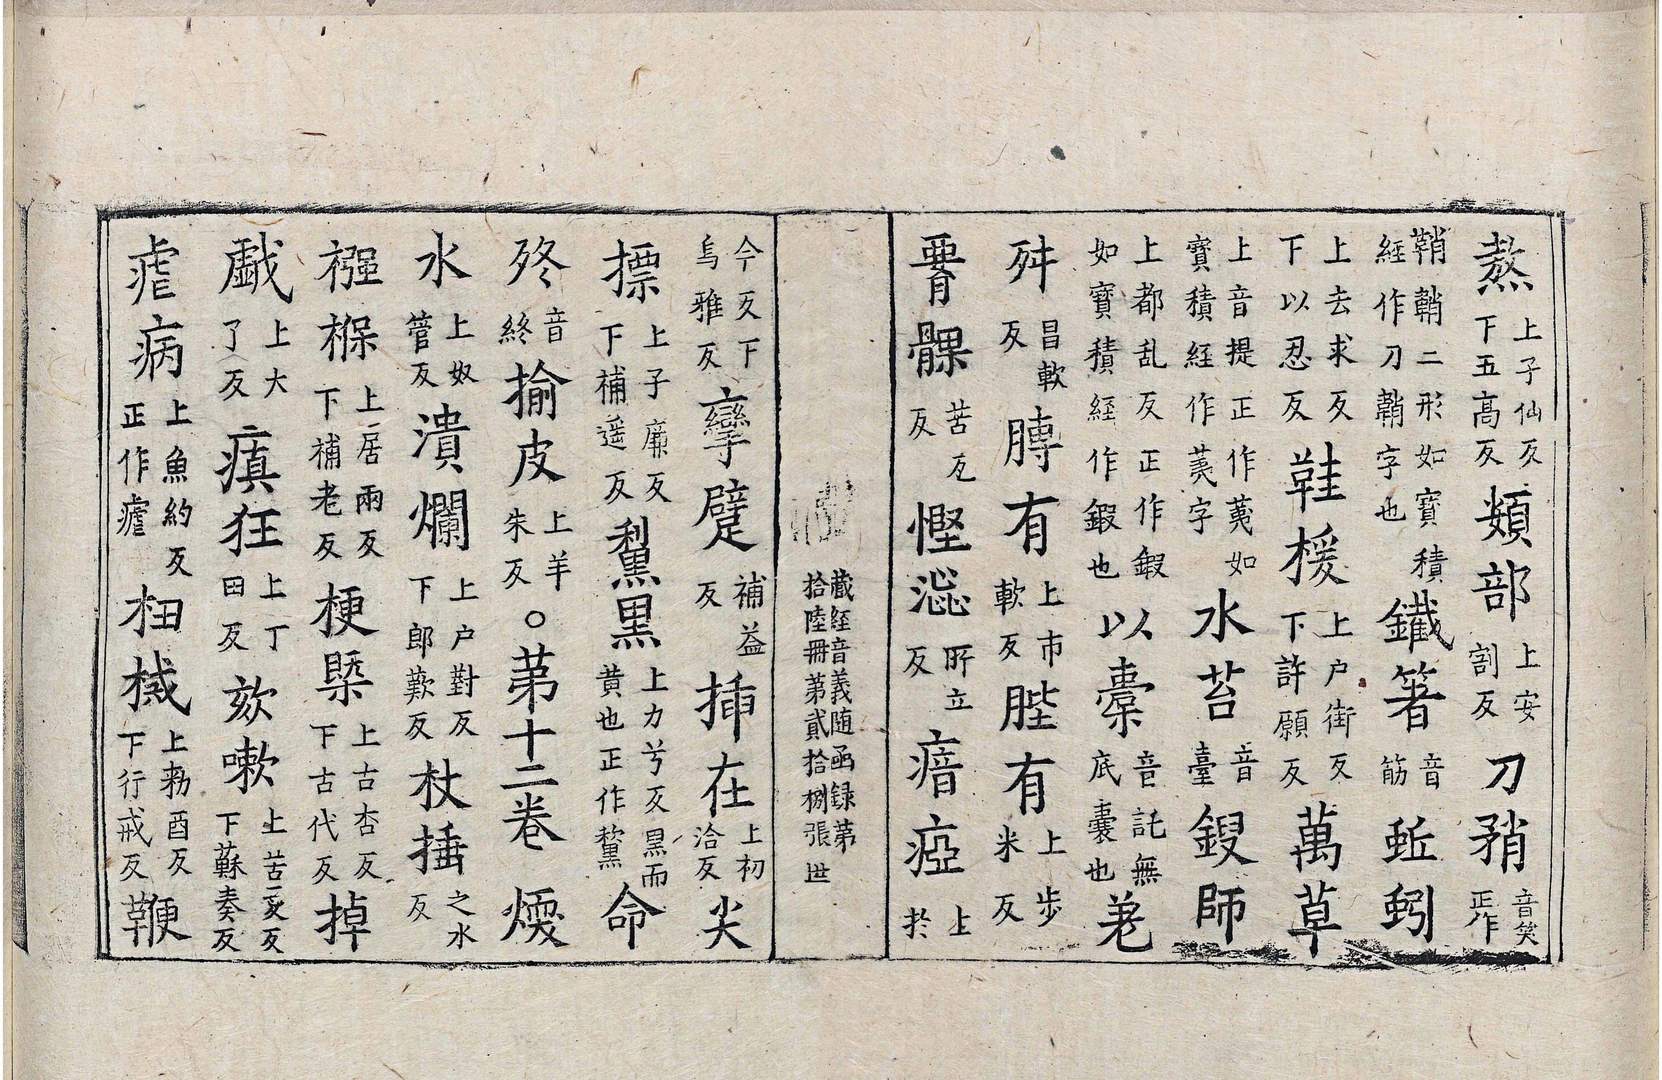 熬上子仙反下五高反頞部上安割反刀矟音笑正作
鞘䩭二形如寳積經作刀䩭字也鐵箸音筯蚯蚓
上去求反下以忍反鞋楥上户街反下許願反萬草
上音提正作荑如寳積經作荑字水苔音臺鍛師
上都乱反正作鍛如寳積經作鍜也以橐音託無底囊也㒵
舛昌軟反膞有上市軟反䏶有上步米反
髁苦瓦反慳澁所立反瘖瘂上扵
藏經音義随函録第拾陸冊第貳拾捌張 世
今反下烏雅反攣躄補益反揷在上初洽反尖
摽上子廉反下補遥反黧黒上力兮反黒而黄也正作黧命
終音終揄皮上羊朱反○第十二卷 煗
水上奴管反潰爛上户對反下郎歎反杖捶之水反
襁褓上居兩反下補老反梗槩上古杏反下古代反掉
戱上大了反瘨狂上丁田反欬嗽上苦亥反下蘇奏反
瘧病上魚約反正作瘧杻械上勑酉反下行戒反鞭